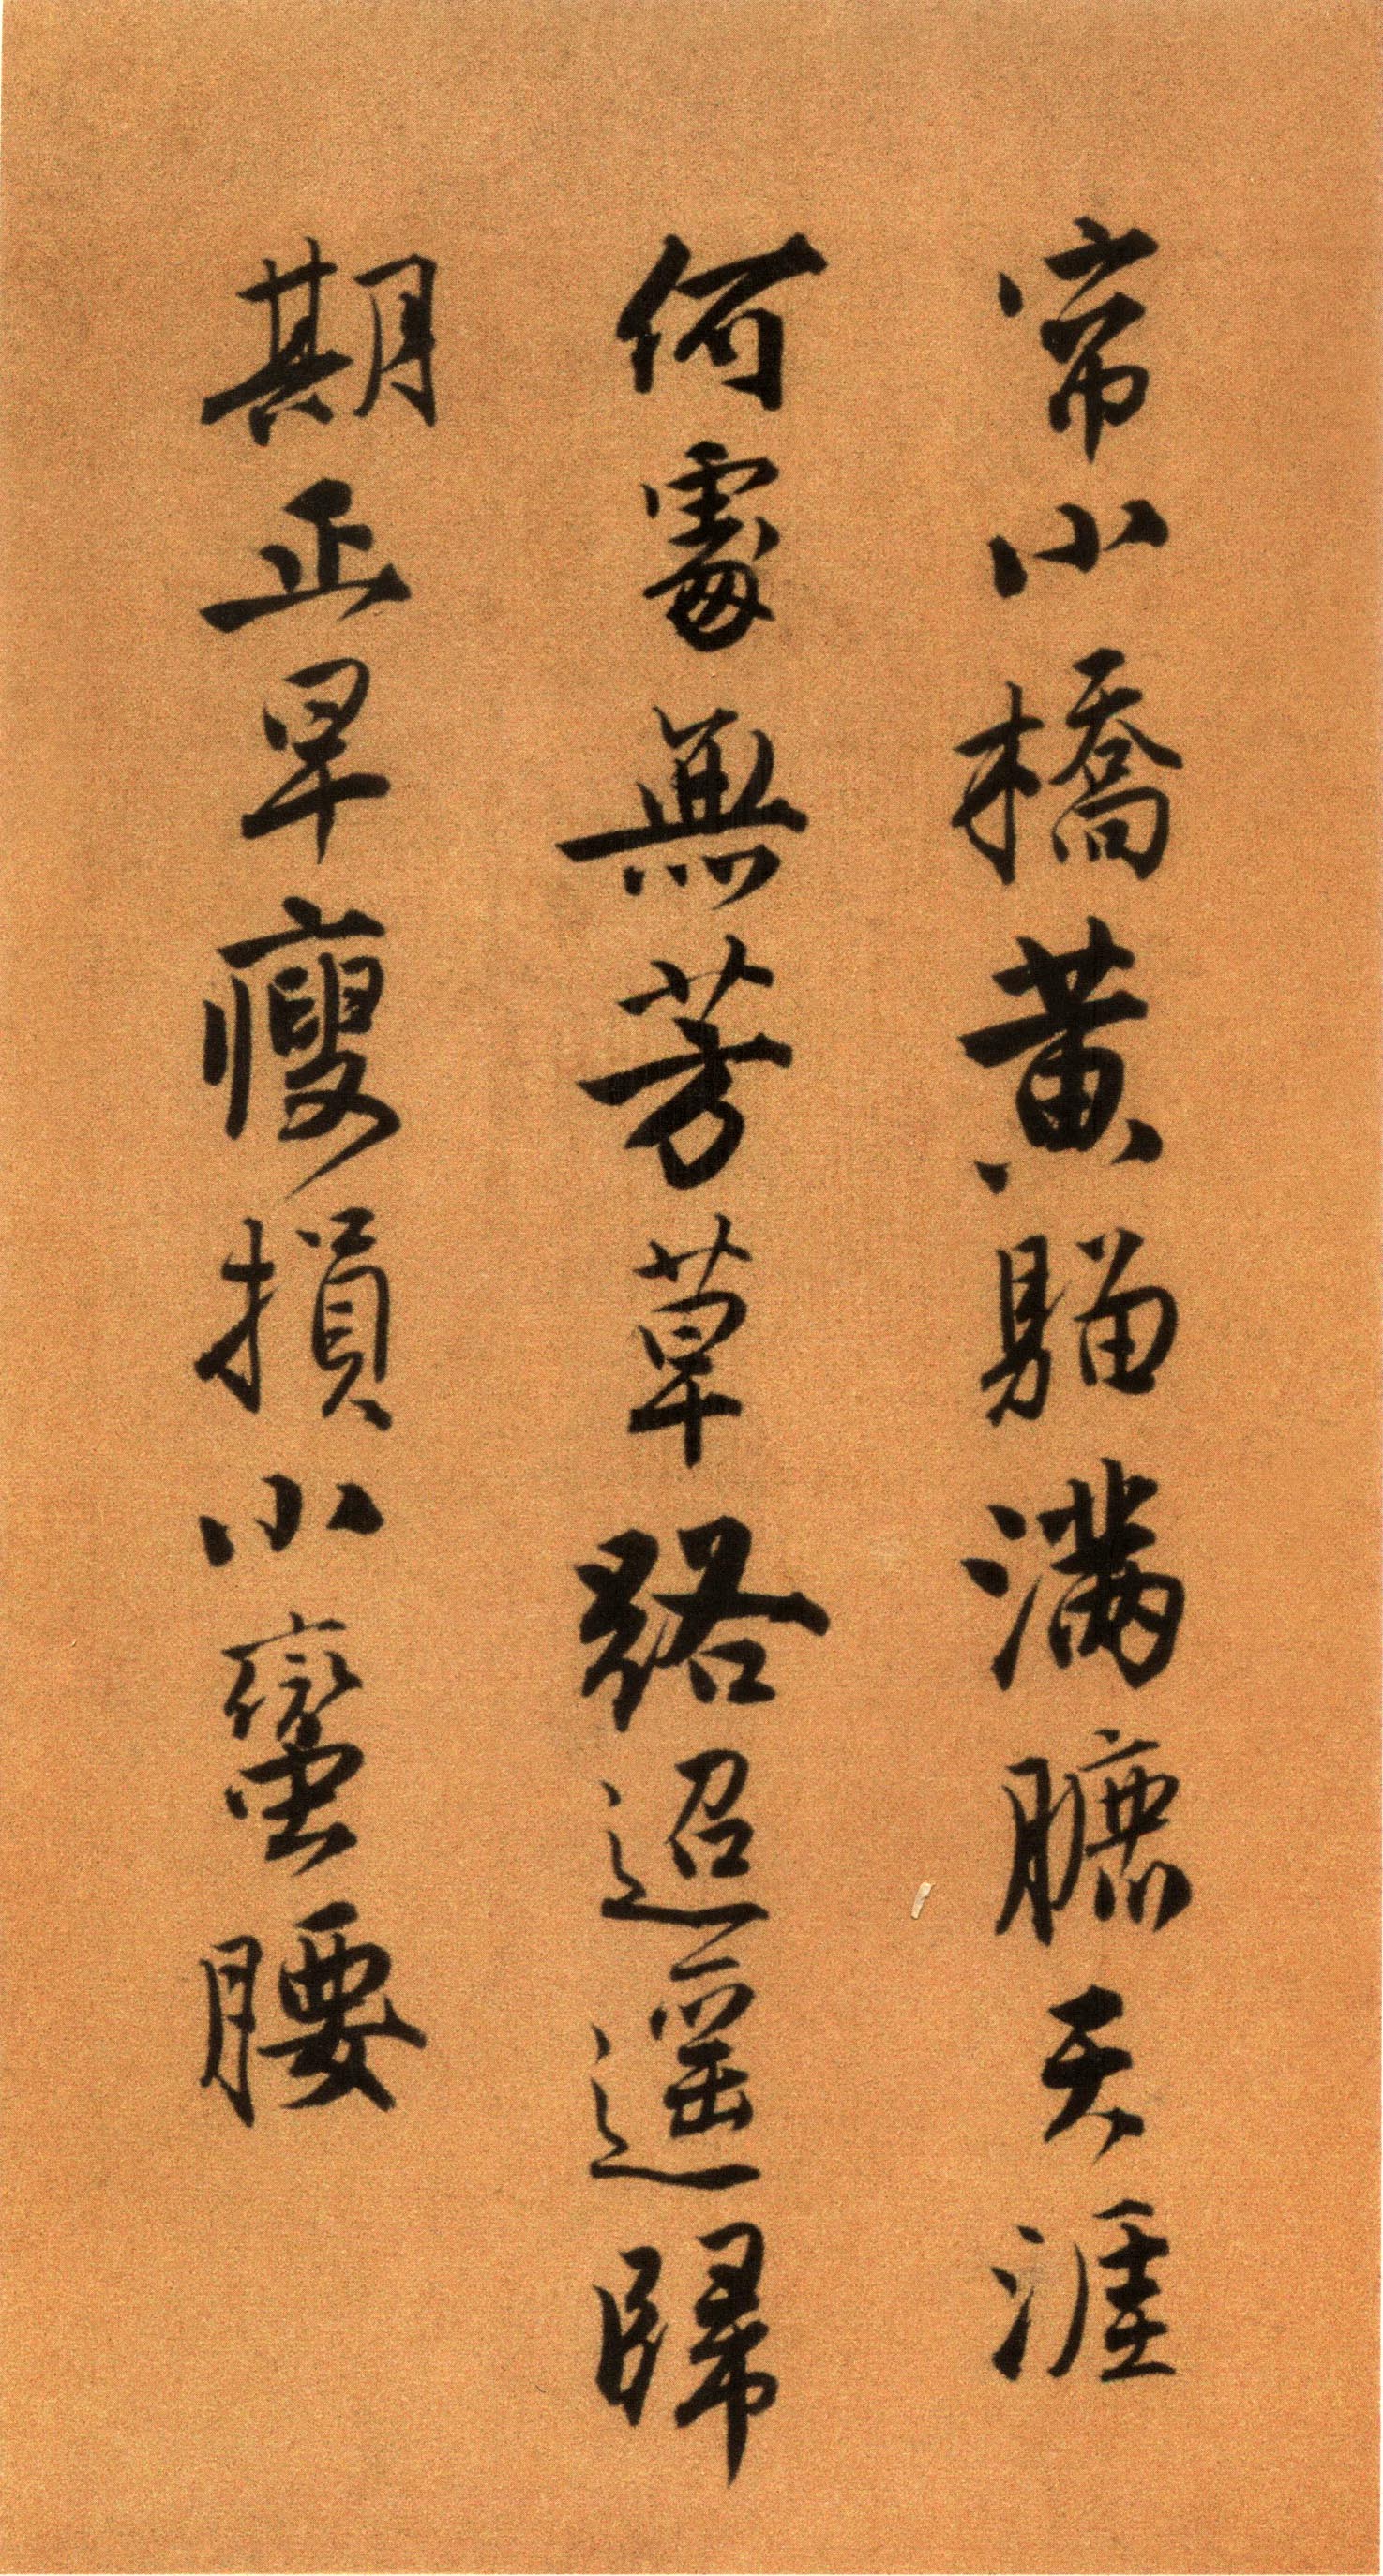 帘小橋黃騮滿臕天涯
何處無芳草路迢遥歸
期正早瘦損小蠻腰